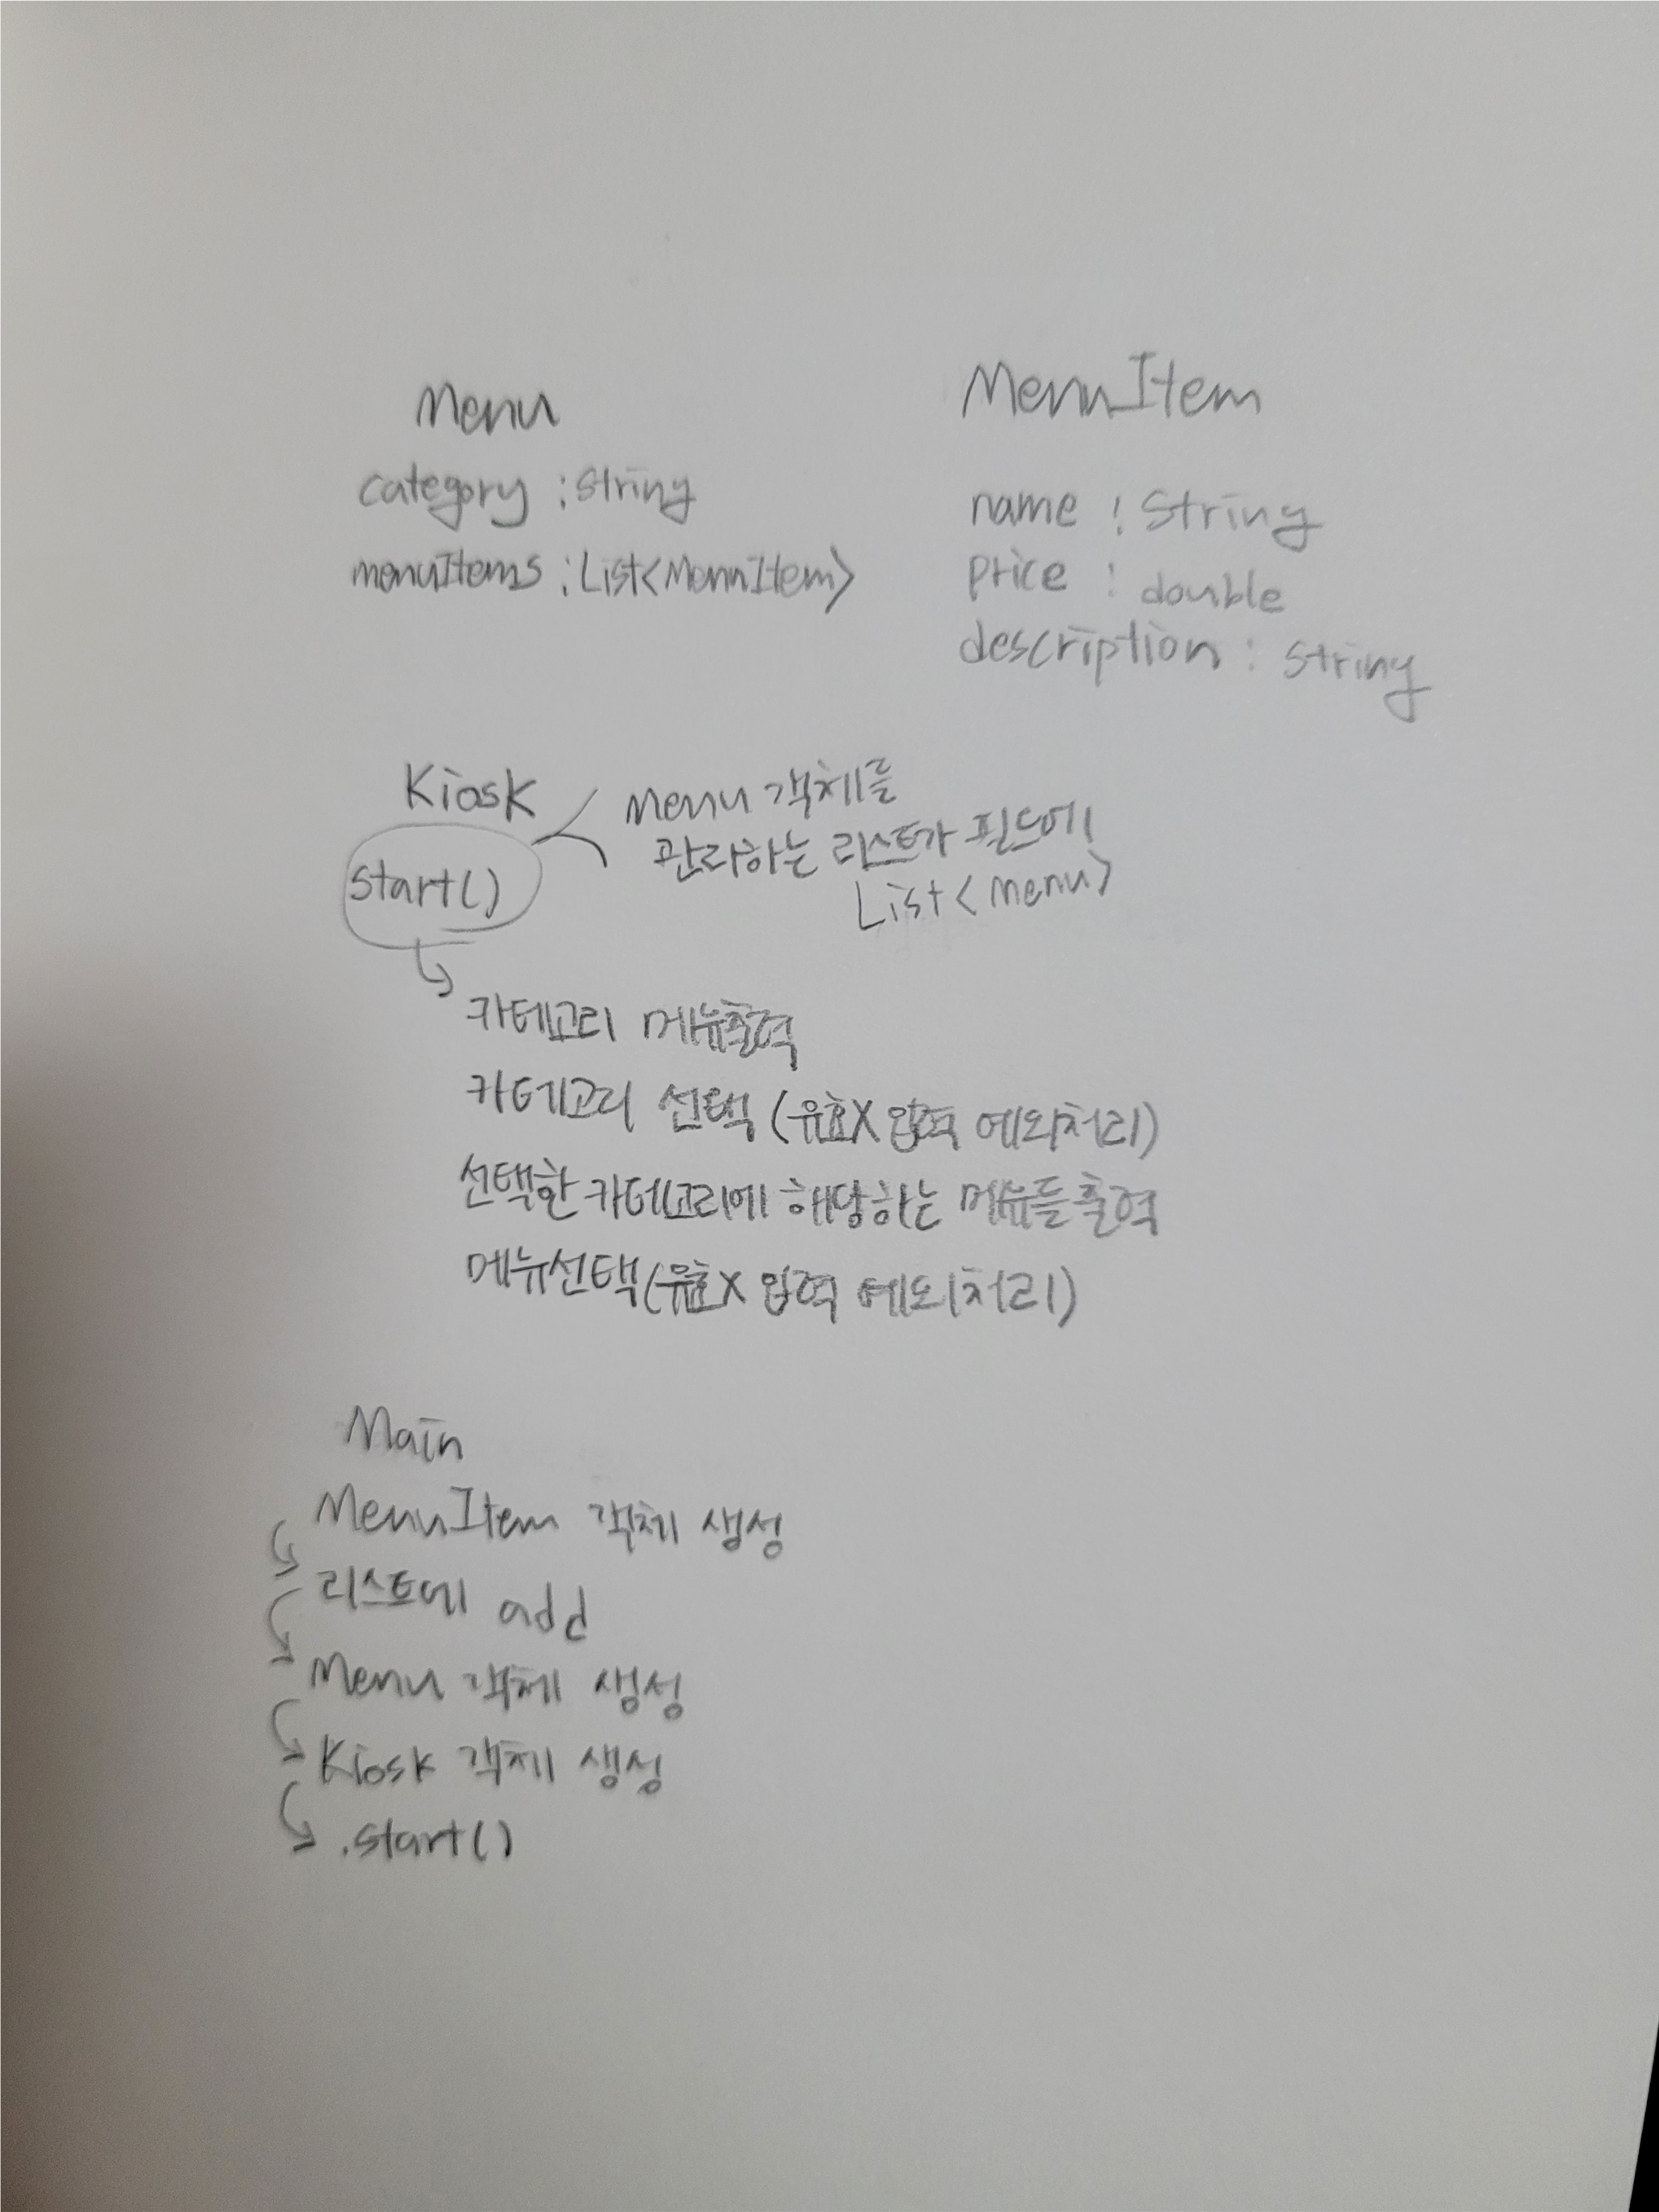 Menu
category : String
menuItems : List<MenuItem>
MenuItem
name : String
price : double
description : String
Kiosk
start()
Menu 객체를
관리하는 리스트가 필드에
List<Menu>
카테고리 메뉴출력
카테고리 선택 (유효X 입력 예외처리)
선택한 카테고리에 해당하는 메뉴들 출력
메뉴선택(유효X 입력 예외처리)
Main
MenuItem 객체 생성
리스트에 add
Menu 객체 생성
Kiosk 객체 생성
.start()